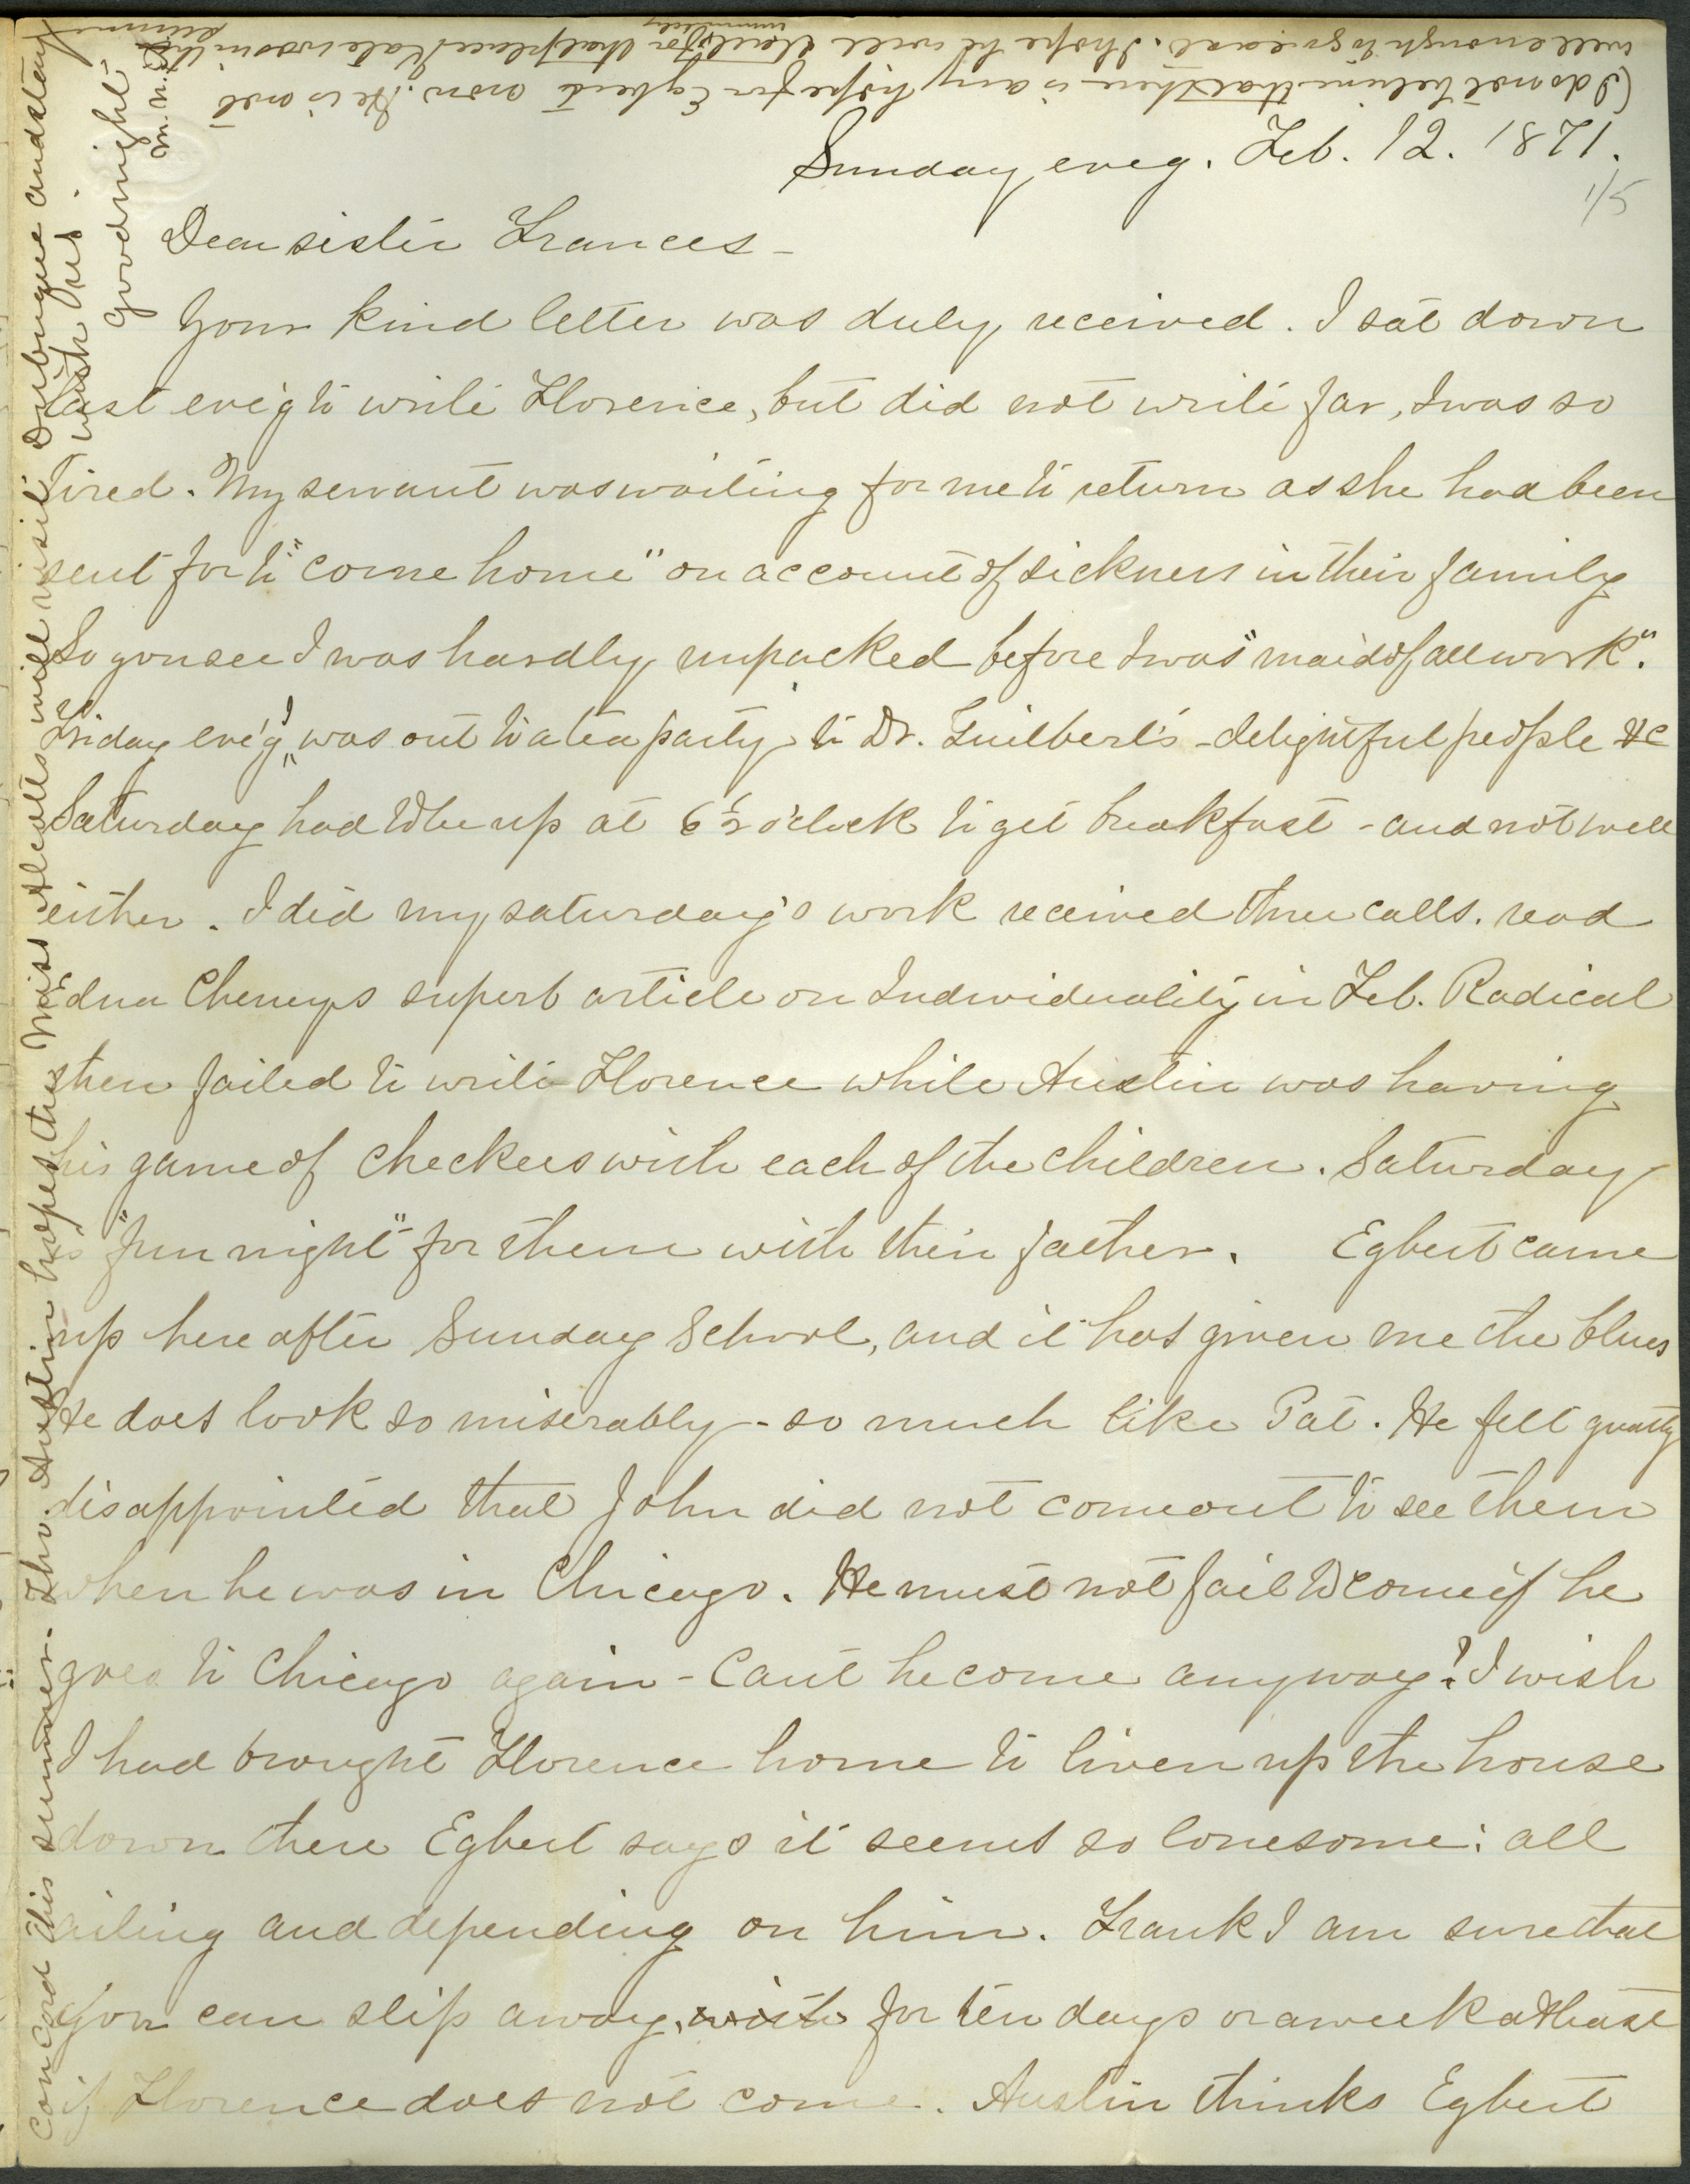 (I do not believe that there is any hope for Egbert now. He is not
well enough to go east. I hope he will start for that place Kate was in the
immediately
summer
Sunday eve'g. Feb. 12. 1871.
1/5
Dear sister Frances -
Your kind letter was duly received. I sat down
last eve'g to write Florence, but did not write far, I was so
tired. My servant was waiting for me to return as she had been
sent for to "come home" on account of sickness in their family
So you see I was hardly unpacked before I was "maid of all work".
Friday eve'g I was out to a tea party to Dr. Guilbert's - delightful people &c
Saturday had to be up at 6 1/2 o'clock to get breakfast - and not well
either. I did my saturday's work received three calls. read
Edna Cheney's superb article on Individuality in Feb. Radical
then failed to write Florence while Austin was having
his game of checkers with each of the children. Saturday
is "fun night" for them with their father. Egbert came
up here after Sunday School, and it has given me the blues
He does look so miserably - so much like Pat. He felt greatly
disappointed that John did not come out to see them
when he was in Chicago. He must not fail to come if he
goes to Chicago again - Can't he come anyway? I wish
I had brought Florence home to liven up the house
down there Egbert says it seems so lonesome: all
ailing and depending on him. Frank I am sure that
you can slip away, with for ten days or a week at least
if Florence does not come. Austin thinks Egbert
Concord this summer. Tho. Austin hopes the Miss Alcotts will visit Dubuque and stay
with us.
Good night
M. M. L.